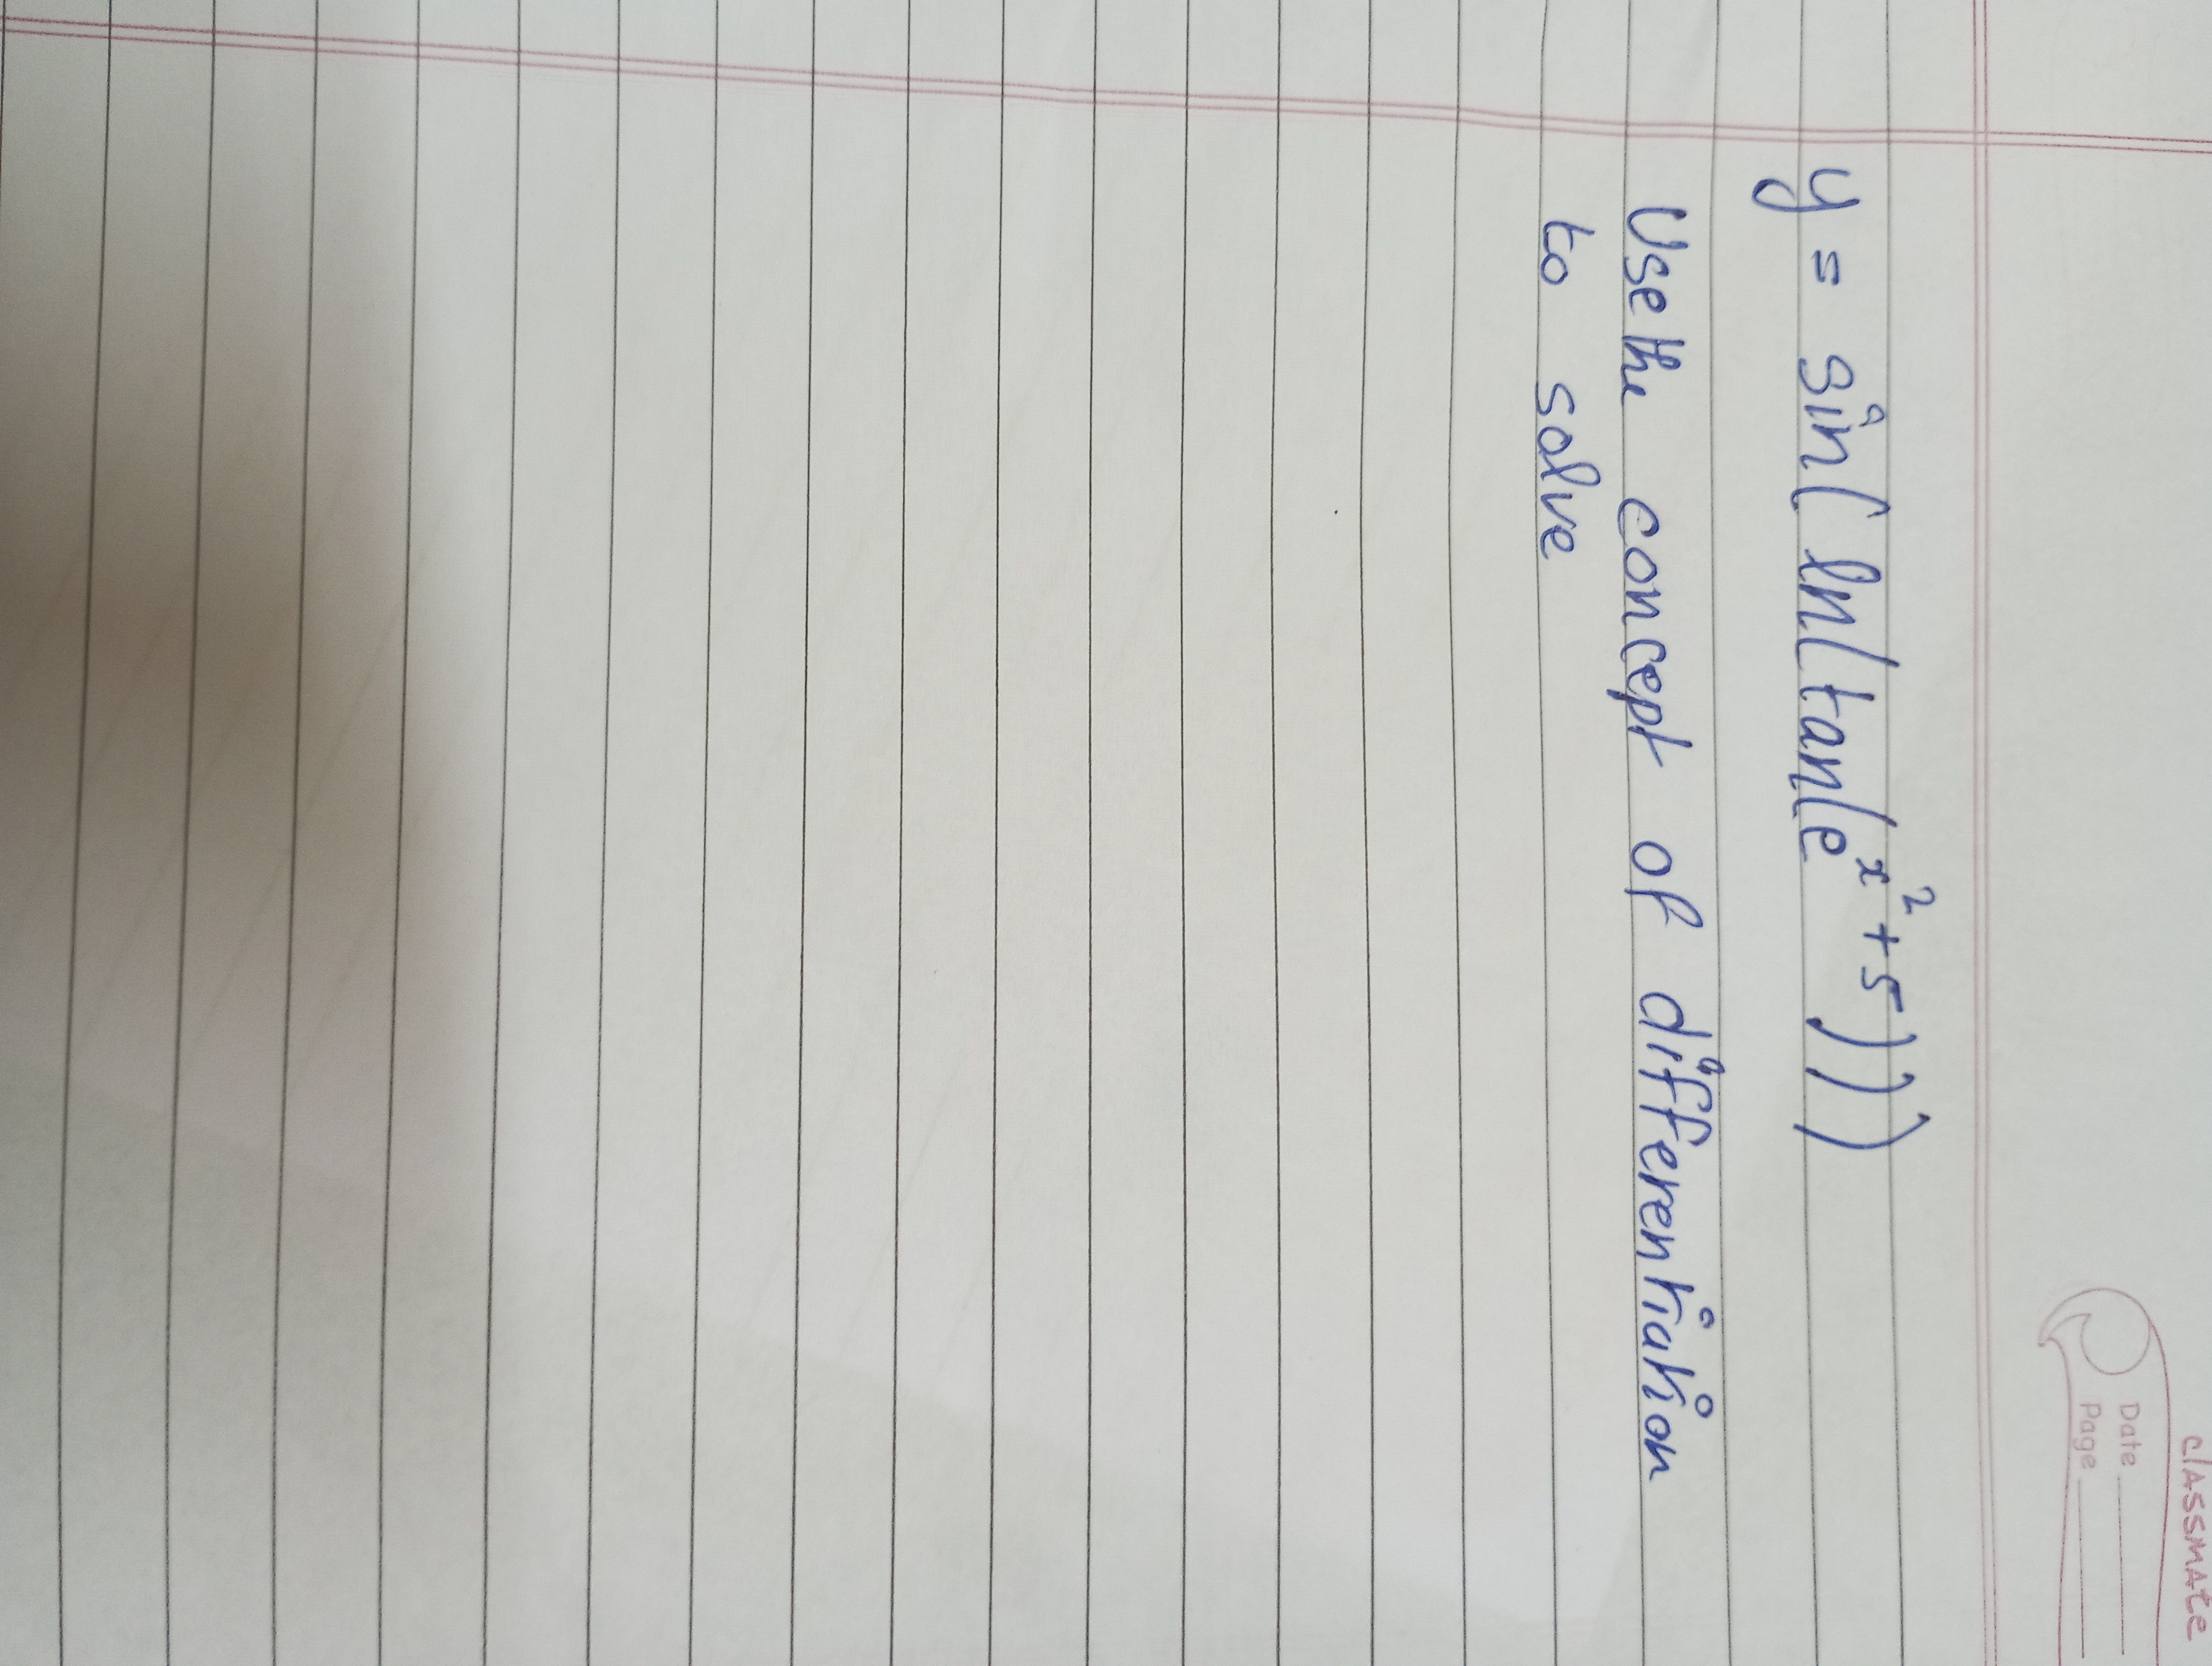 classmate
Date
Page
y = sin(ln(tan(e^x²+5)))
Use the concept of differentiation
to solve